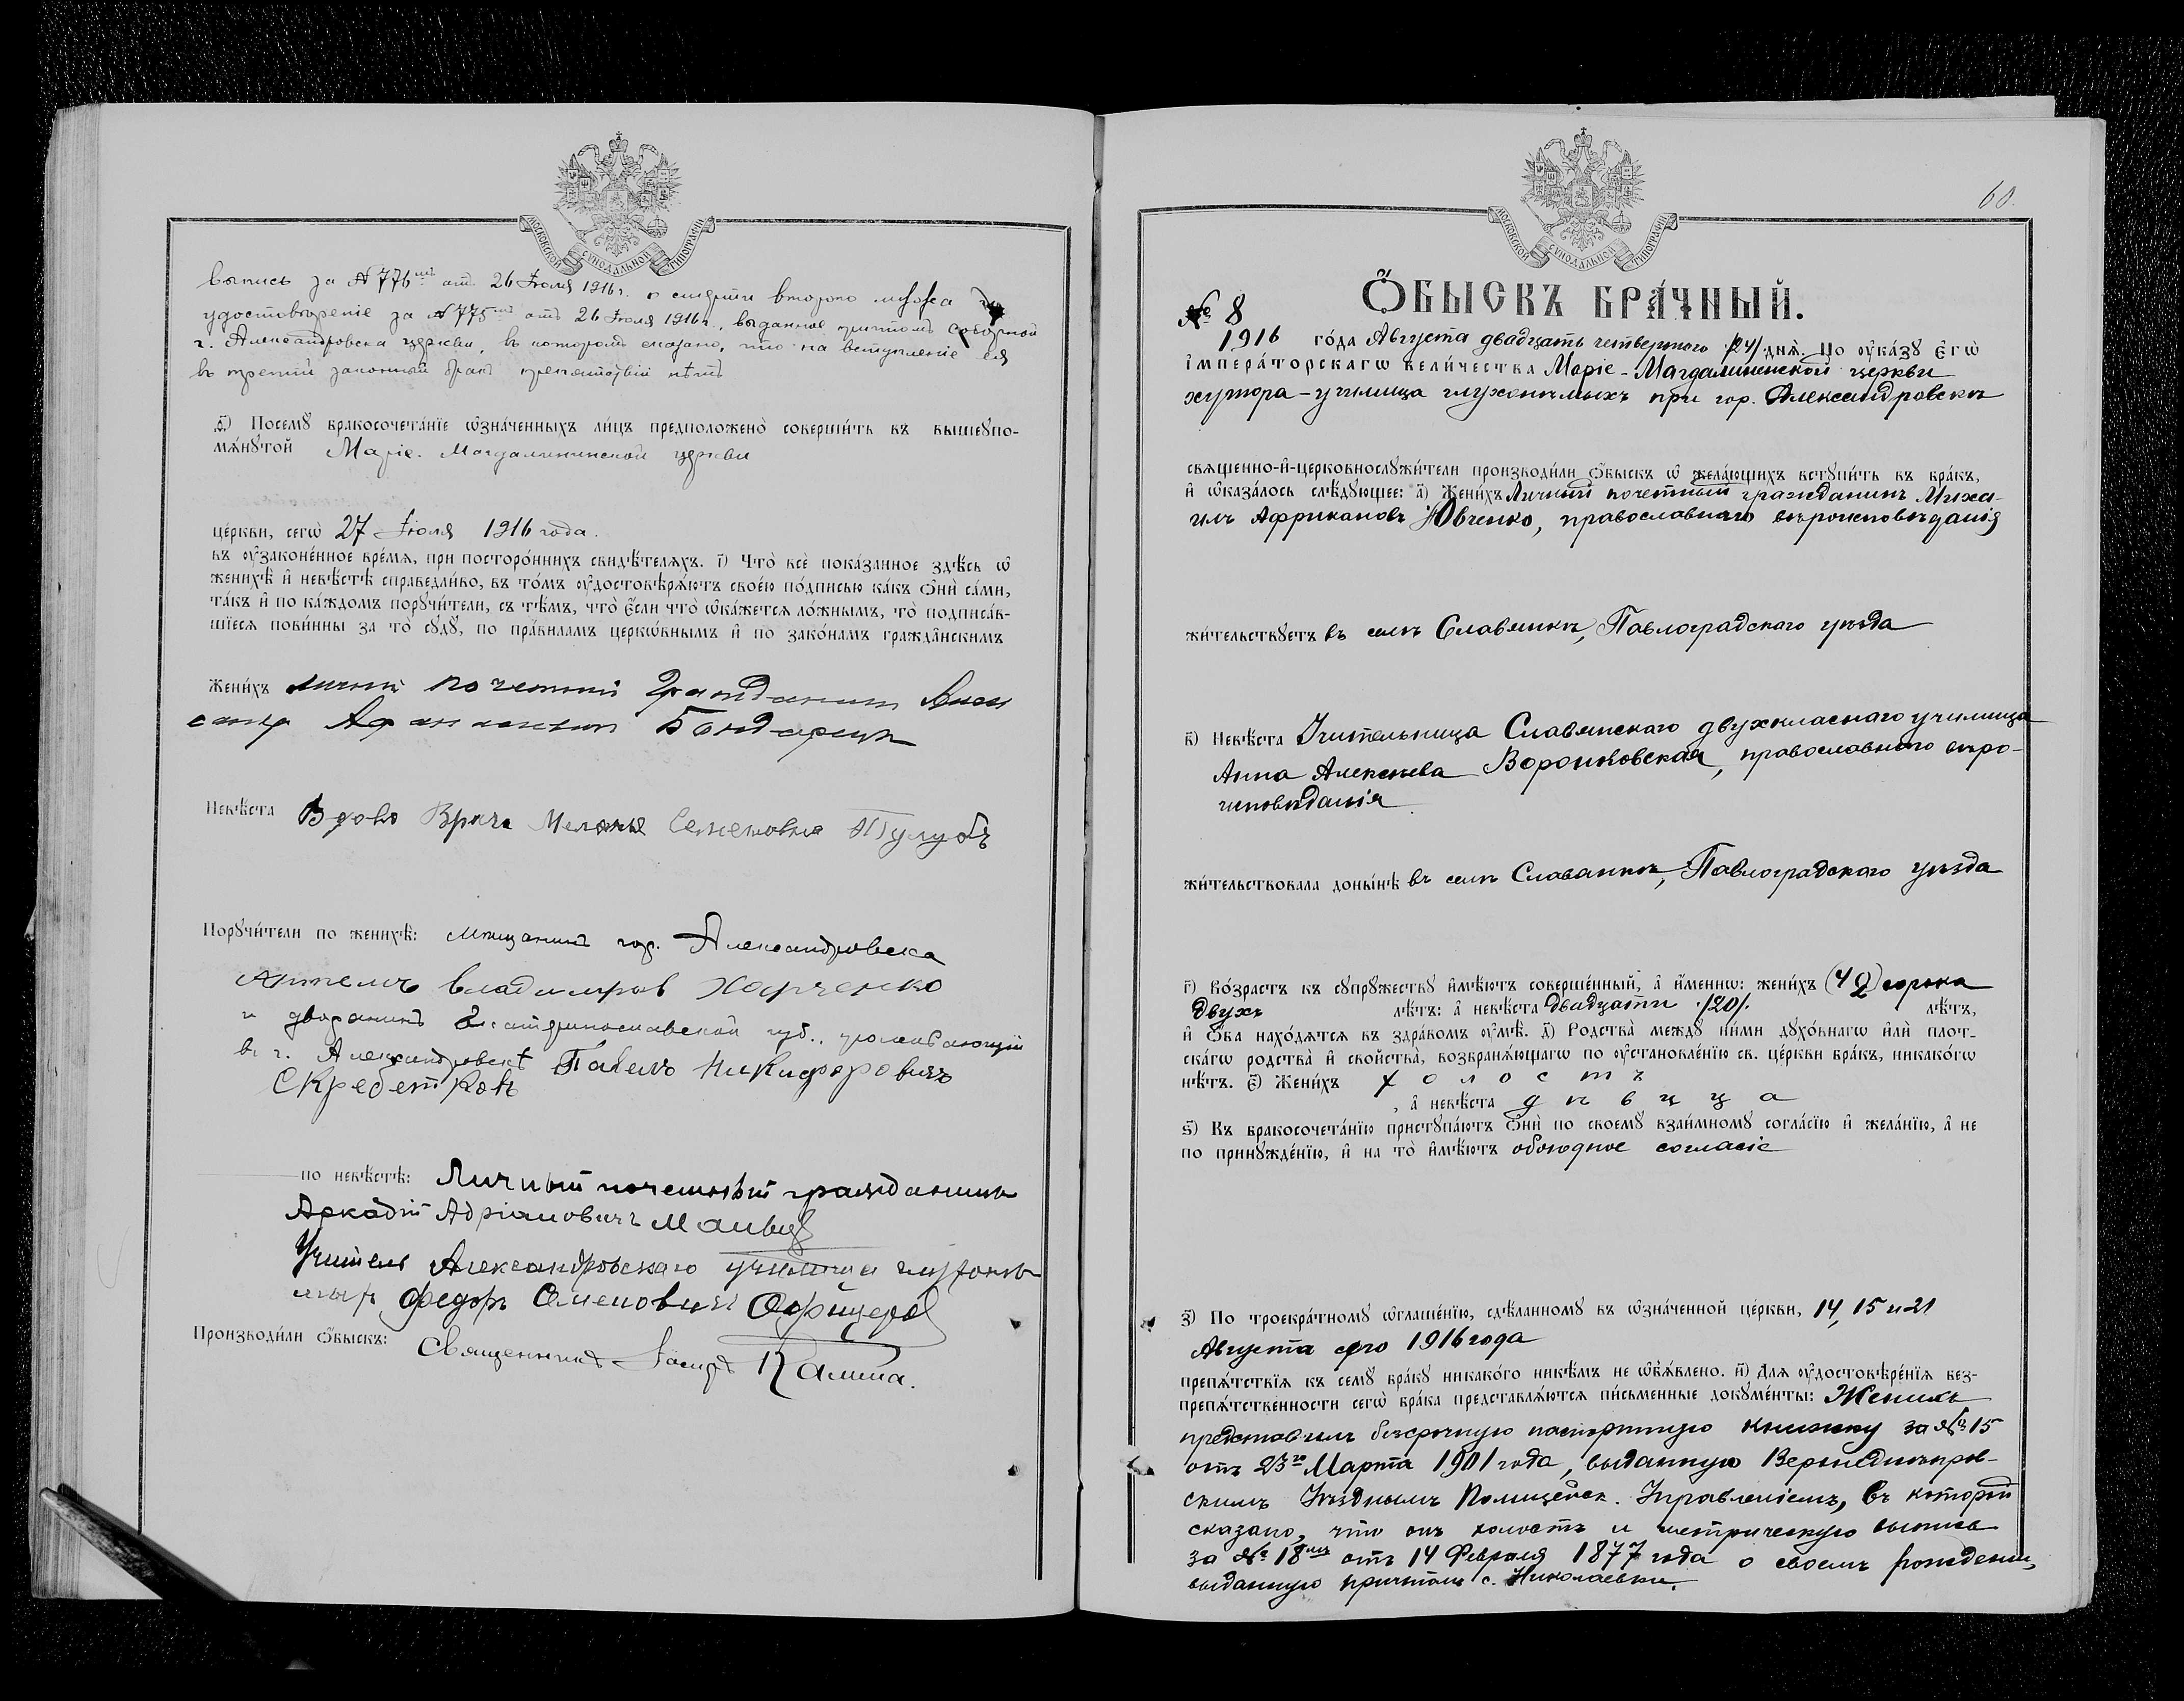 МОСКОВСКОЙ СУНОДАЛЬНОЙ ТИПОГРАФІИ
выпись за № 776мъ отъ 26 Іюля 1916 г. о смерти второго мужа и
удостовѣреніе за № 775мъ отъ 26 Іюля 1916 г., выданное причтомъ соборной
г. Александровска церкви, въ которомъ сказано, что на вступленіе ея
въ третій законный бракъ препятствій нѣтъ
Посемꙋ бракосочета́нїе ѡ҆зна́ченныхъ ли́цъ предположено̀ соверши́ть въ вышеꙋпо-
мѧ́нꙋтой Маріе-Магдалининской церкви
це́ркви, сегѡ̀ 27 Іюля 1916 года.
въ ᲂу҆законе́нное вре́мѧ, при посторо́ннихъ свидѣ́телѧхъ. і҃) Что̀ всѐ пока́занное здѣ́сь ѡ҆
женихѣ̀ и҆ невѣ́стѣ справедли́во, въ то́мъ ᲂу҆достовѣрѧ́ютъ свое́ю по́дписью ка́къ ѻ҆нѝ са́ми,
та́къ и҆ по ка́ждомъ порꙋчи́тели, съ тѣ́мъ, что̀ є҆́сли что̀ ѡ҆ка́жетсѧ ло́жнымъ, то̀ подписа́в-
шїесѧ пови́нны за то̀ сꙋдꙋ̀, по пра́виламъ церкѡ́внымъ и҆ по зако́намъ гражда́нскимъ
Жени́хъ личный почетный Гражданинъ
Бондарецъ
Невѣ́ста Вдова Врача Меланья Семеновна Тулубъ
Порꙋчи́тели по женихѣ̀: мѣщанинъ гор. Александровска
Владиміров Харченко
и дворянинъ Екатеринославской губ., проживающій
в. г. Александровскѣ Павелъ Никифоровичъ
по невѣ́стѣ: Личный почетный гражданинъ
Аркадій Адріановичъ
Учитель Александровскаго училища глухонѣ-
мыхъ Федоръ Семеновичъ Офицеровъ
Производи́ли ѻ҆́быскъ: Священникъ Іосифъ Калита.
60.
МОСКОВСКОЙ СУНОДАЛЬНОЙ ТИПОГРАФІИ
Ѻ҆́БЫСКЪ БРА́ЧНЫЙ.
№ 8
1916 го́да Августа двадцать четвертаго /24/ днѧ̀. По ᲂу҆ка́зꙋ є҆гѡ̀
і҆мпера́торскагѡ вели́чества Маріе-Магдалининской церкви
хутора-училища глухонѣмыхъ при гор. Александровскѣ
свѧщенно-и҆-церковнослꙋжи́тели производи́ли ѻ҆́быскъ ѡ҆ жела́ющихъ встꙋпи́ть въ бра́къ,
и҆ ѡ҆каза́лось слѣ́дꙋющее: а҃) Жени́хъ Личный почетный гражданинъ Миха-
илъ Африкановъ Ювченко, православнаго вѣроисповѣданія
жи́тельствꙋетъ въ селѣ Славянкѣ, Павлоградскаго уѣзда
в҃) Невѣ́ста Учительница Славянскаго двухкласнаго училища
Анна Алексѣева Воронковская, православнаго вѣро-
исповѣданія
жи́тельствовала доны́нѣ въ селѣ Славянкѣ, Павлоградскаго уѣзда
г҃) Во́зрастъ къ сꙋпрꙋ́жествꙋ и҆мѣ́ютъ соверше́нный, а҆ и҆́меннѡ: жени́хъ (42) сорока
двухъ лѣ́тъ: а҆ невѣ́ста двадцати /20/. лѣ́тъ,
и҆ ѻ҆́ба нахо́дѧтсѧ въ здра́вомъ ᲂу҆мѣ̀. д҃) Родства̀ междꙋ ни́ми дꙋхо́внагѡ и҆лѝ плот-
ска́гѡ родства̀ и҆ свойства̀, возбранѧ́ющагѡ по ᲂу҆становле́нїю св. це́ркви бра́къ, никако́гѡ
нѣ́тъ. є҃) Жени́хъ холостъ
, а҆ невѣ́ста дѣвица
ѕ҃) Къ бракосочета́нїю пристꙋпа́ютъ ѻ҆нѝ по своемꙋ̀ взаи́мномꙋ согла́сїю и҆ жела́нїю, а҆ не
по принꙋжде́нїю, и҆ на то̀ и҆мѣ́ютъ обоюдное согласіе
з҃) По троекра́тномꙋ ѡ҆глаше́нїю, сдѣ́ланномꙋ въ ѡ҆зна́ченной це́ркви, 14, 15 и 21
Августа сего 1916 года
препѧ́тствїѧ къ семꙋ̀ бра́кꙋ никако́го никѣ́мъ не ѡ҆б̾ѧ́влено. и҃) Длѧ ᲂу҆достовѣре́нїѧ без-
препѧ́тственности сегѡ̀ бра́ка представлѧ́ютсѧ пи́сьменные докꙋме́нты: Женихъ
представилъ безсрочную паспортную книжку за № 15
отъ 23го Марта 1901 года, выданную Верхнеднѣпров-
скимъ Уѣзднымъ Полицейск. Управленіемъ, въ которой
сказано, что онъ холостъ и метрическую выпись
за № 18мъ отъ 14 Февраля 1877 года о своемъ рожденіи,
выданную причтомъ с. Николаевки.